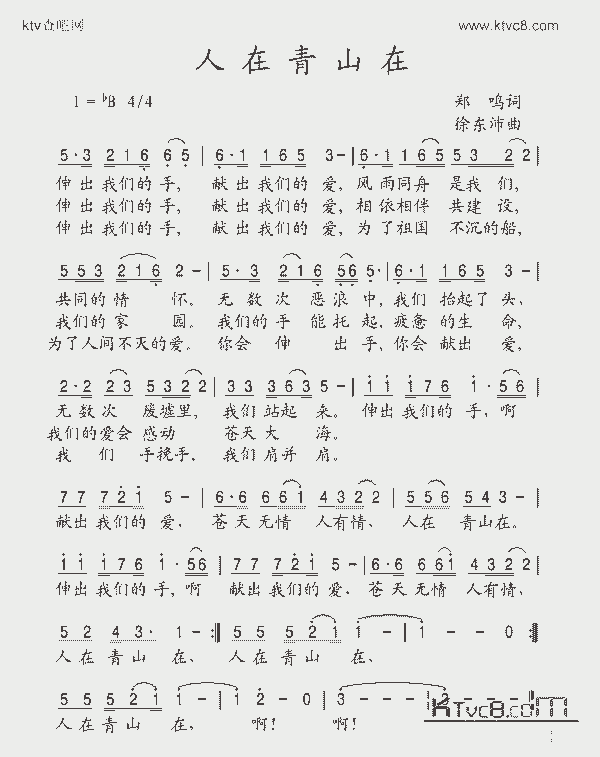 ktv查吧网 www.ktvc8.com
人在青山在
1 = ♭B 4/4 郑 鸣词
徐东沛曲
5·3 2 1 6 6 5 | 6·1 1 6 5 3 - | 6·1 1 6 5 5 3 2 2 |
伸出我们的手, 献出我们的爱, 风雨同舟 是我们,
伸出我们的手, 献出我们的爱, 相依相伴 共建设,
伸出我们的手, 献出我们的爱, 为了祖国 不沉的船,
5 5 3 2 1 6 2 - | 5·3 2 1 6 5 6 5· | 6·1 1 6 5 3 - |
共同的情 怀。 无数次 恶浪中, 我们 抬起了头,
我们的家 园。 我们的手 能托起, 疲惫的生 命,
为了人间不灭的爱。 你会 伸 出手, 你会献出 爱,
2·2 2 3 5 3 2 2 | 3 3 3 6 3 5 - | 1 1 1 7 6 1·5 6 |
无数次 废墟里, 我们 站起 来。 伸出我们的手, 啊
我们的爱会 感动 苍天大 海。
我 们 手挽手, 我们肩并 肩。
7 7 7 2 1 5 - | 6·6 6 6 1 4 3 2 2 | 5 5 6 5 4 3 - |
献出我们的爱, 苍天无情 人有情、 人在 青山在。
1 1 1 7 6 1·5 6 | 7 7 7 2 1 5 - | 6·6 6 6 1 4 3 2 2 |
伸出我们的手, 啊 献出我们的爱、 苍天无情 人有情、
5 2 4 3· 1 - :‖ 5 5 5 2 1 1 - | 1 - - 0 :‖
人在青山 在、 人在青山 在、
5 5 5 2 1 | 1 - - | 1 2 - 0 | 3 - - - | 3 - - -
人在青山 在、 啊! 啊!
KTvc8.com